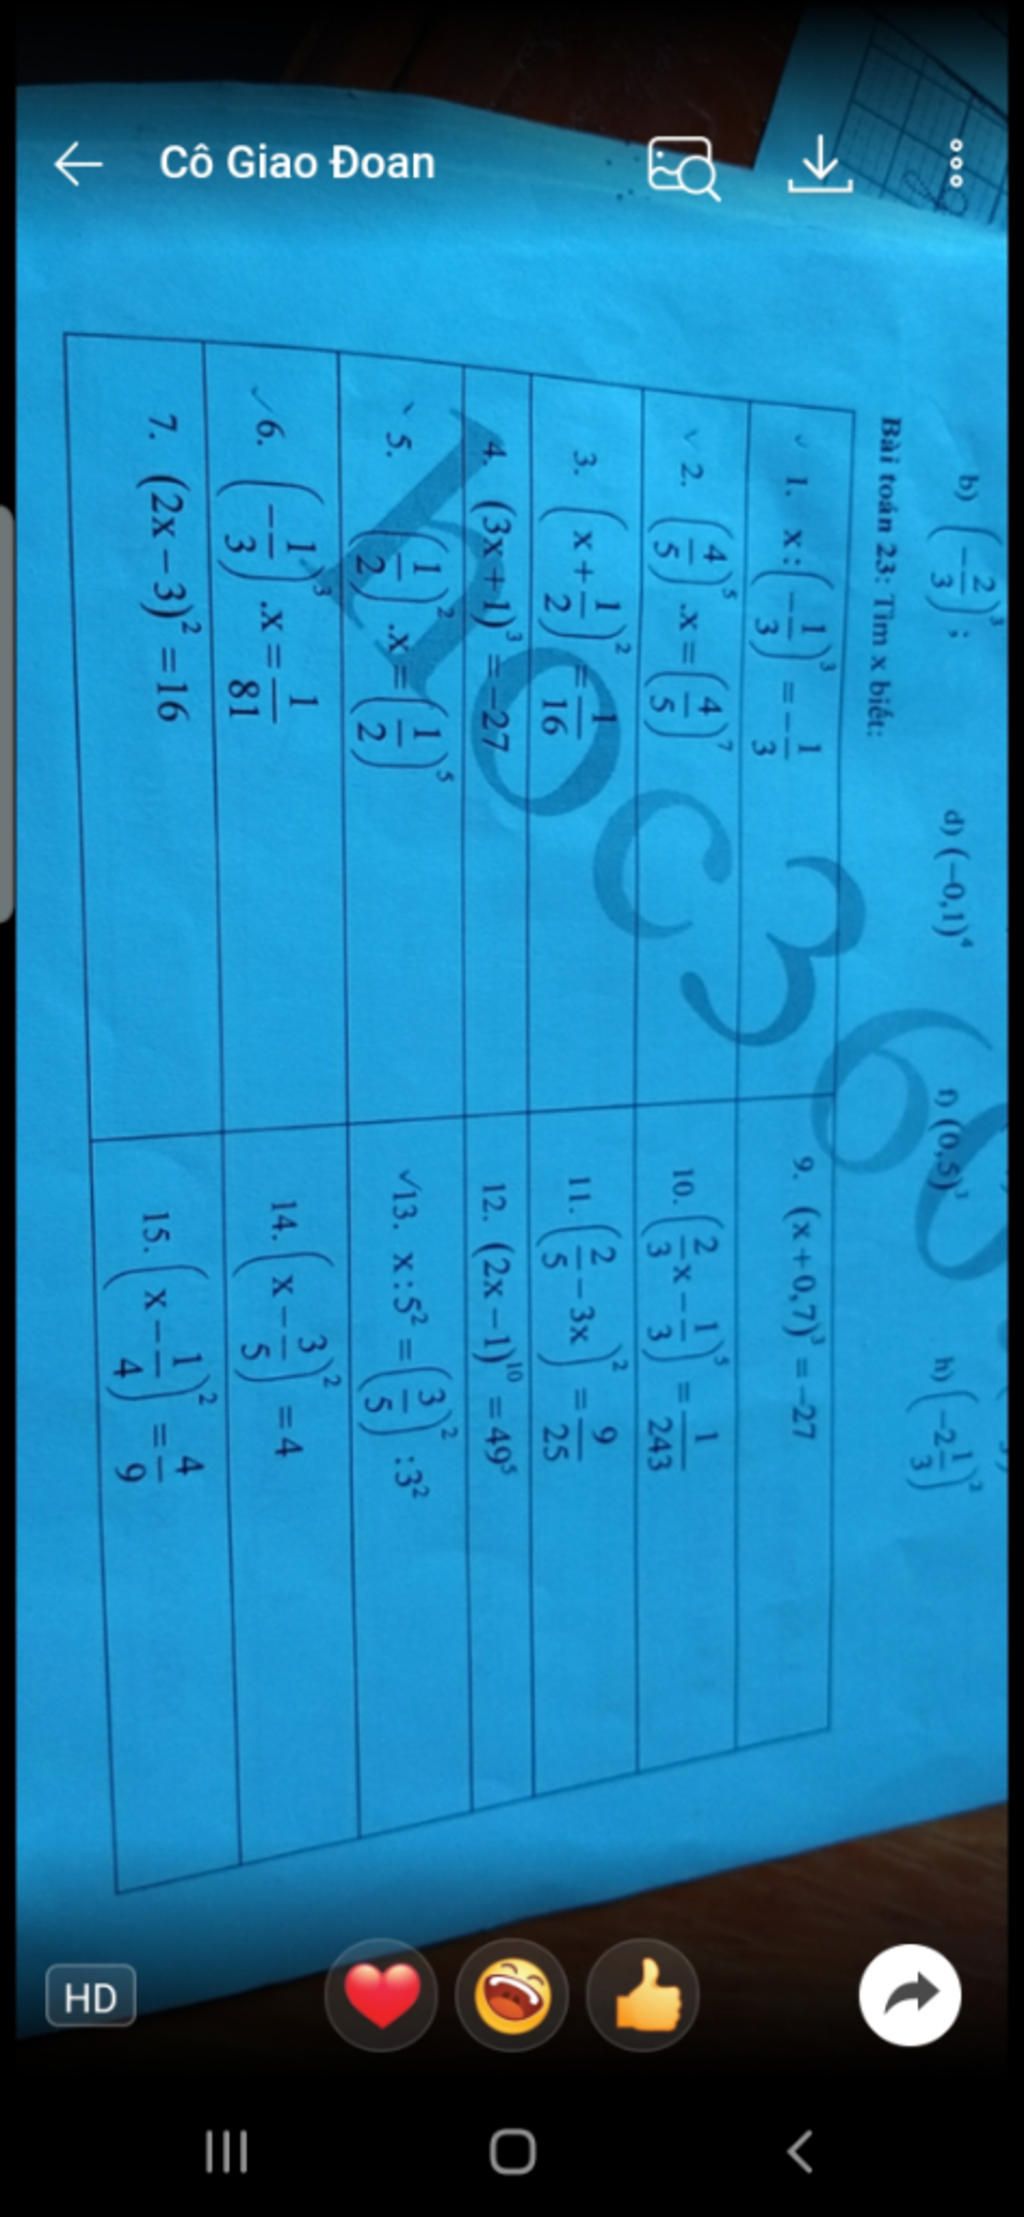 Cô Giao Đoan
b) (-2/3)³ ;
d) (−0,1)⁴
f) (0,5)³
h) (-2 1/3)²
Bài toán 23: Tìm x biết:
1. x : (-1/3)³ = -1/3
9. (x + 0,7)³ = −27
2. (4/5)⁵ .x = (4/5)⁷
10. (2/3 x − 1/3)⁵ = 1/243
3. (x + 1/2)² = 1/16
11. (2/5 − 3x)² = 9/25
4. (3x + 1)³ = −27
12. (2x − 1)¹⁰ = 49⁵
5. (1/2)² .x = (1/2)⁵
13. x : 5² = (3/5)² : 3²
6. (-1/3)³ .x = 1/81
14. (x − 3/5)² = 4
7. (2x − 3)² = 16
15. (x − 1/4)² = 4/9
hoc36
HD